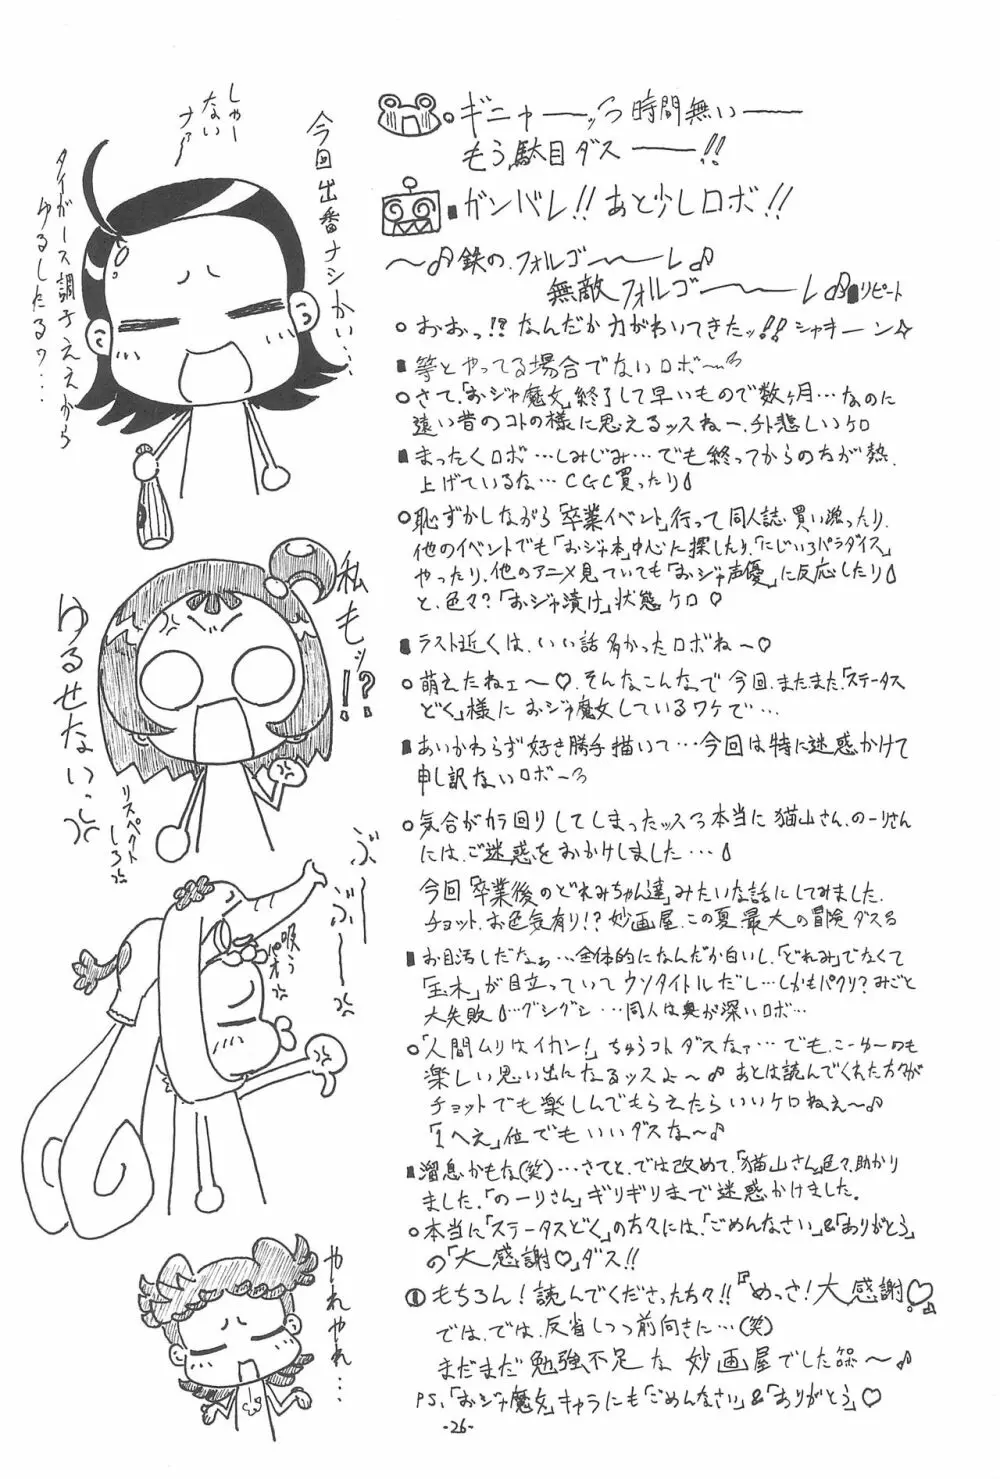 ギニャーーッ 時間無いーー
もう駄目ダスーー!!
ガンバレ!!あと少しロボ!!
〜♪鉄の、フォルゴ〜〜レ♪
無敵フォルゴ〜〜レ♪リピート
おおっ!?なんだか力がわいてきたッ!!シャキーン☆
等とやってる場合でないロボ〜
さて、「おジャ魔女」終了して早いもので数ヶ月…なのに
遠い昔のコトの様に思えるッスねー、チト悲しいケロ
まったくロボ…しみじみ…でも終ってからの方が熱、
上げているな…CGC買ったり
恥ずかしながら「卒業イベント」行って同人誌買い漁ったり、
他のイベントでも「おジャ本」中心に探したり、「にじいろパラダイス」
やったり、他のアニメ見ていても「おジャ声優」に反応したり
と、色々?「おジャ漬け」状態ケロ♡
ラスト近くは、いい話多かったロボね〜♡
萌えたねェ〜♡、そんなこんなで今回、またまた「ステータス
どく」様におジャ魔女しているワケで…
あいかわらず好き勝手描いて…今回は特に迷惑かけて
申し訳ないロボ〜
気合がカラ回りしてしまったッス 本当に猫山さん、のーりさん
には、ご迷惑をおかけしました…
今回「卒業後のどれみちゃん達」みたいな話にしてみました、
チョット、お色気有り!?妙画屋、この夏、最大の冒険ダス
お目汚しだなぁ…全体的になんだか白いし、「どれみ」でなくて
「玉木」が目立っていてウソタイトルだし…しかもパクリ?みごと
大失敗…グシグシ…同人は奥が深いロボ…
「人間ムリはイカン!」ちゅうコトダスなァ…でも、こーゆーのも
楽しい思い出になるッスよ〜♪あとは読んでくれた方々が
チョットでも楽しんでもらえたらいいケロねぇ〜♪
「1へえ」位でもいいダスな〜♪
溜息かもな(笑)…さてと、では改めて、「猫山さん」色々、助かり
ました、「のーりさん」ギリギリまで迷惑かけました。
本当に「ステータスどく」の方々には、「ごめんなさい」&「ありがとう」
の「大感謝♡」ダス!!
もちろん!読んでくださった方々!!『めっさ!大感謝♡』
では、では、反省しつつ前向きに…(笑)
まだまだ勉強不足な妙画屋でした〜♪
PS、「おジャ魔女」キャラにも「ごめんなさい」&「ありがとう」♡
-26-
今回出番ナシかい…
しゃー
ない
ナァ〜
タイガース調子ええから
ゆるしたるワ…
私もッ!?
ゆるせないっ
リスペクト
しろ
ぶ〜
ぶ〜
吸う
パオ
やれやれ…